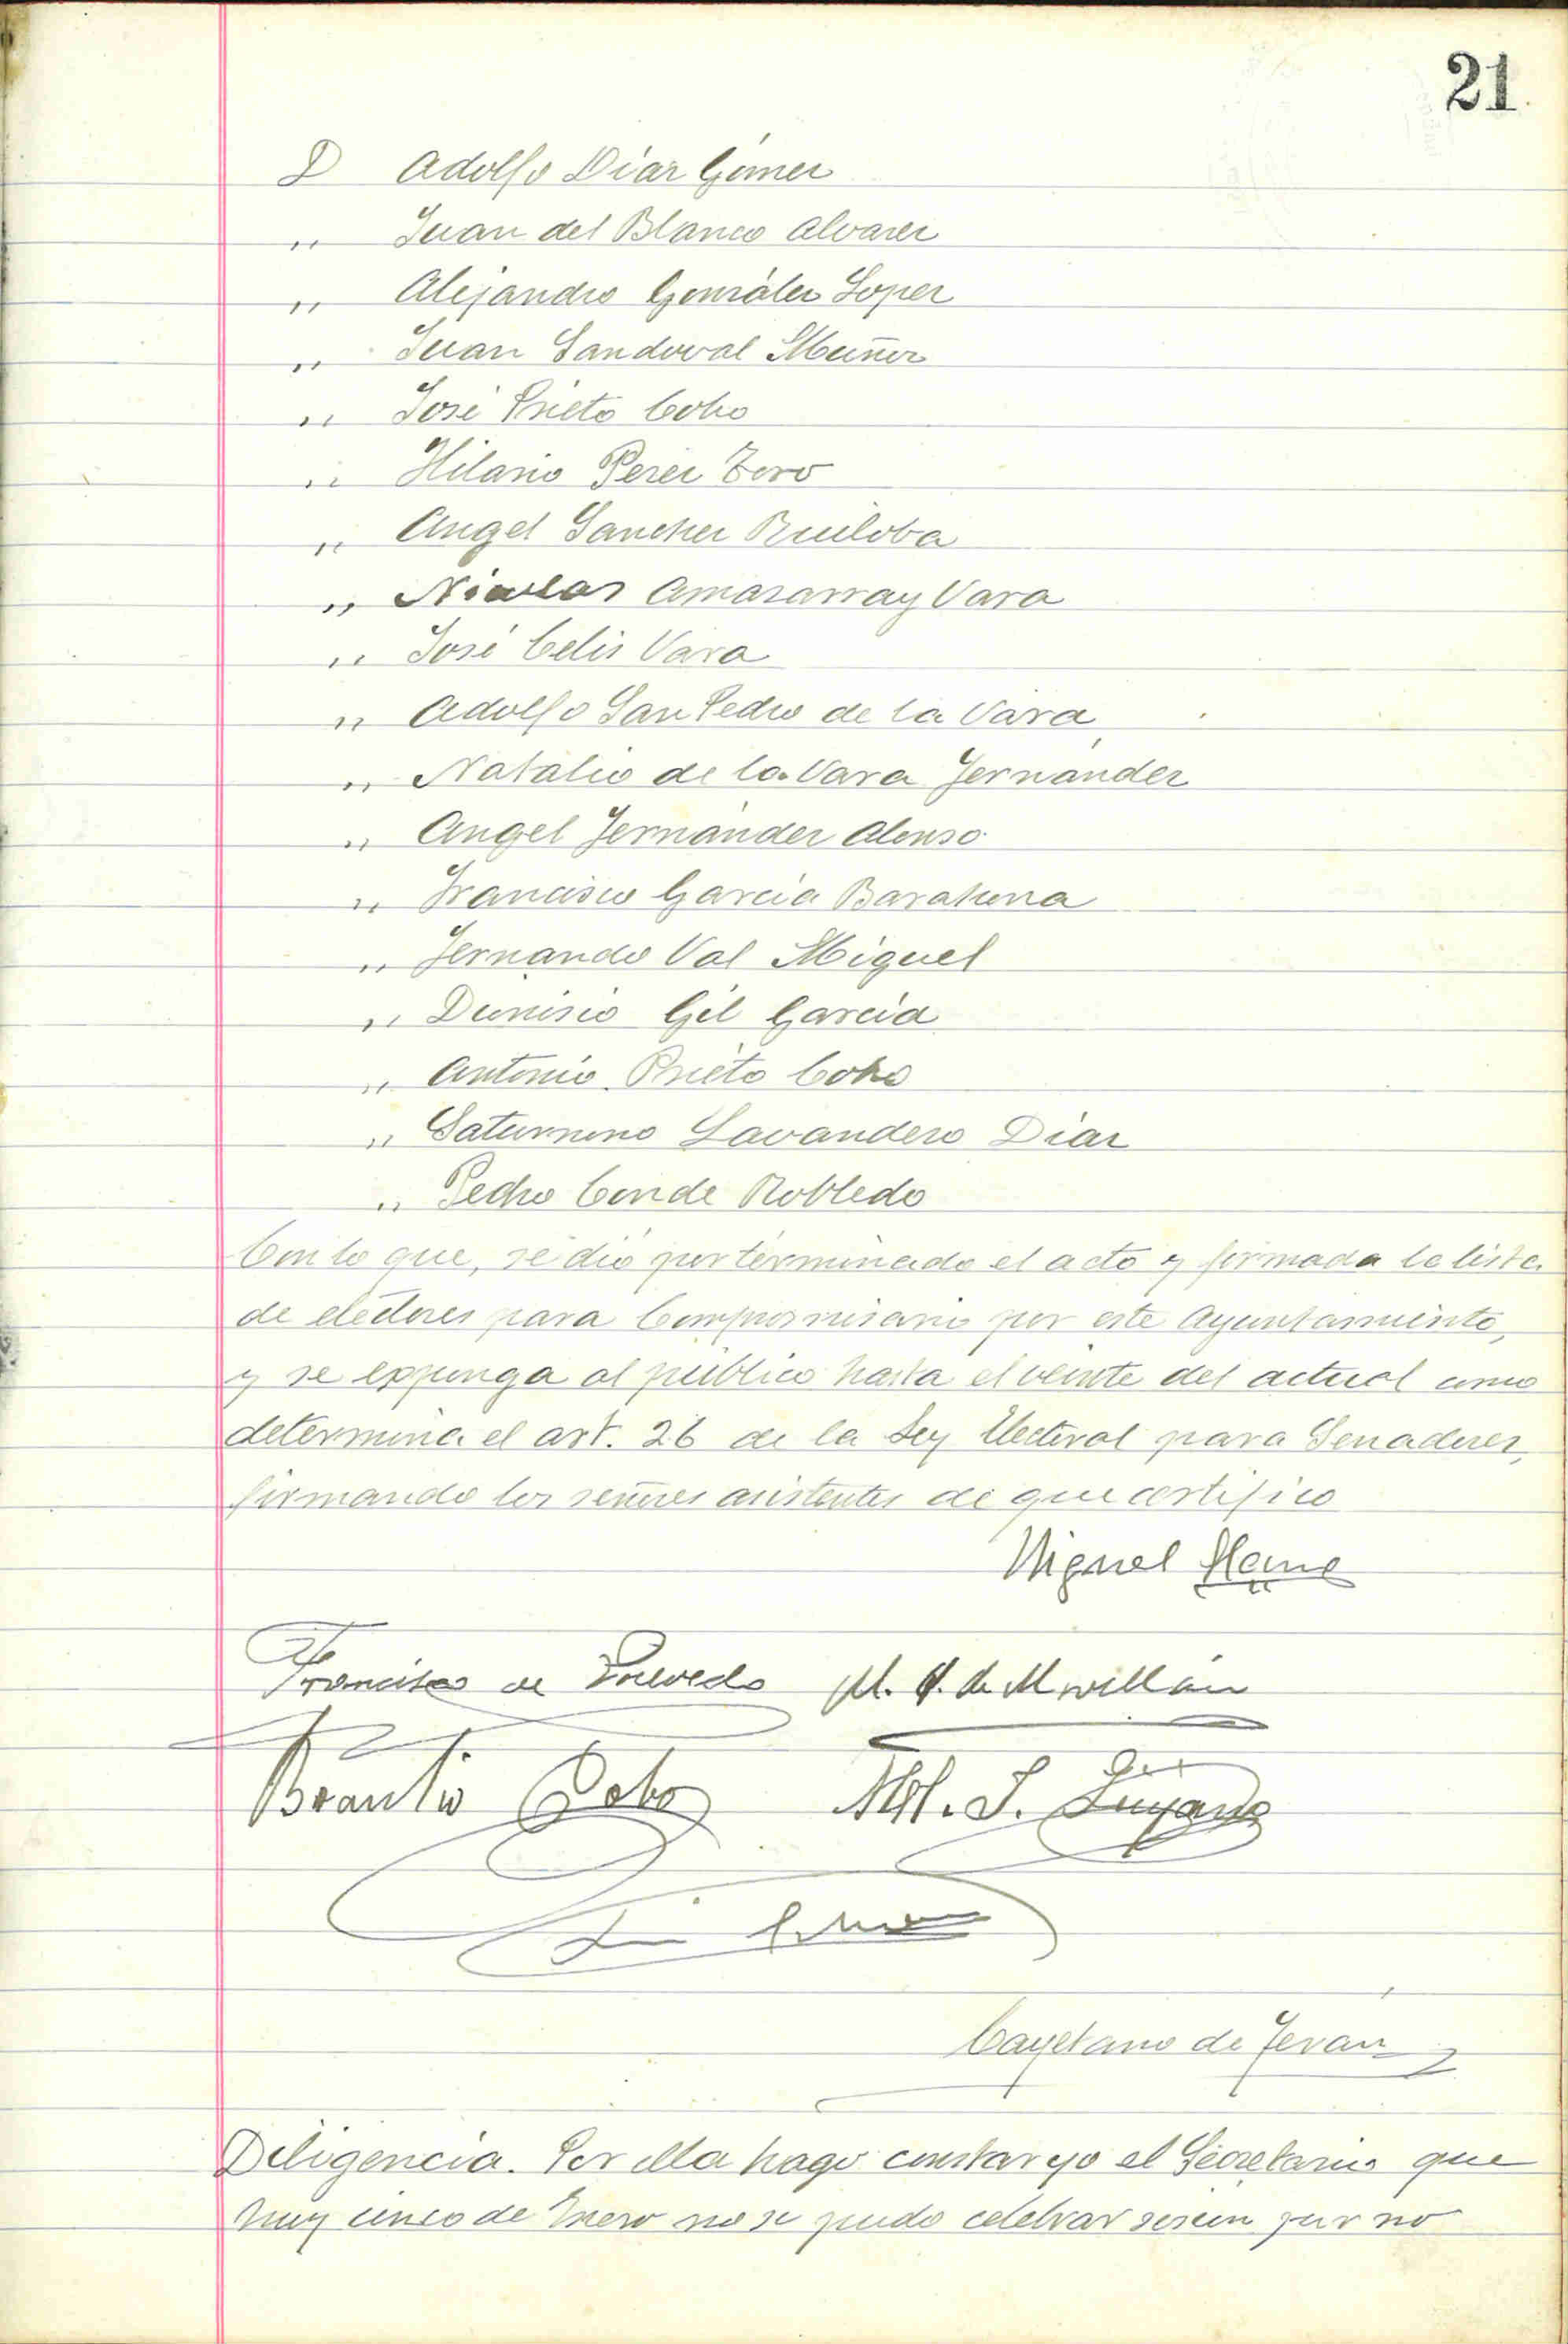 21
D Adolfo Diaz Gómez
" Juan del Blanco Alvarez
" Alejandro González Lopez
" Juan Sandoval Muñoz
" José Prieto Cobo
" Hilario Perez Toro
" Angel Sanchez Ruiloba
" Nicolas Amasarray Vara
" José Celis Vara
" Adolfo San Pedro de la Vara
" Natalio de la Vara Fernández
" Angel Fernández Alonso
" Francisco García Barahona
" Fernando Val Miguel
" Dionisio Gil García
" Antonio Prieto Cobo
" Saturnino Lavandero Diaz
" Pedro Conde Robledo
Con lo que, se dió por terminado el acto y firmada la lista
de electores para Compromisario por este Ayuntamiento,
y se exponga al público hasta el veinte del actual como
determina el art. 26 de la Ley Electoral para Senadores,
firmando los señores asistentes de que certifico
Miguel
Francisco de Quevedo M. de Morillan
Braulio Cobo M. S.
Cayetano de
Diligencia. Por ella hago constar yo el Secretario que
hoy cinco de Enero no se pudo celebrar sesion por no